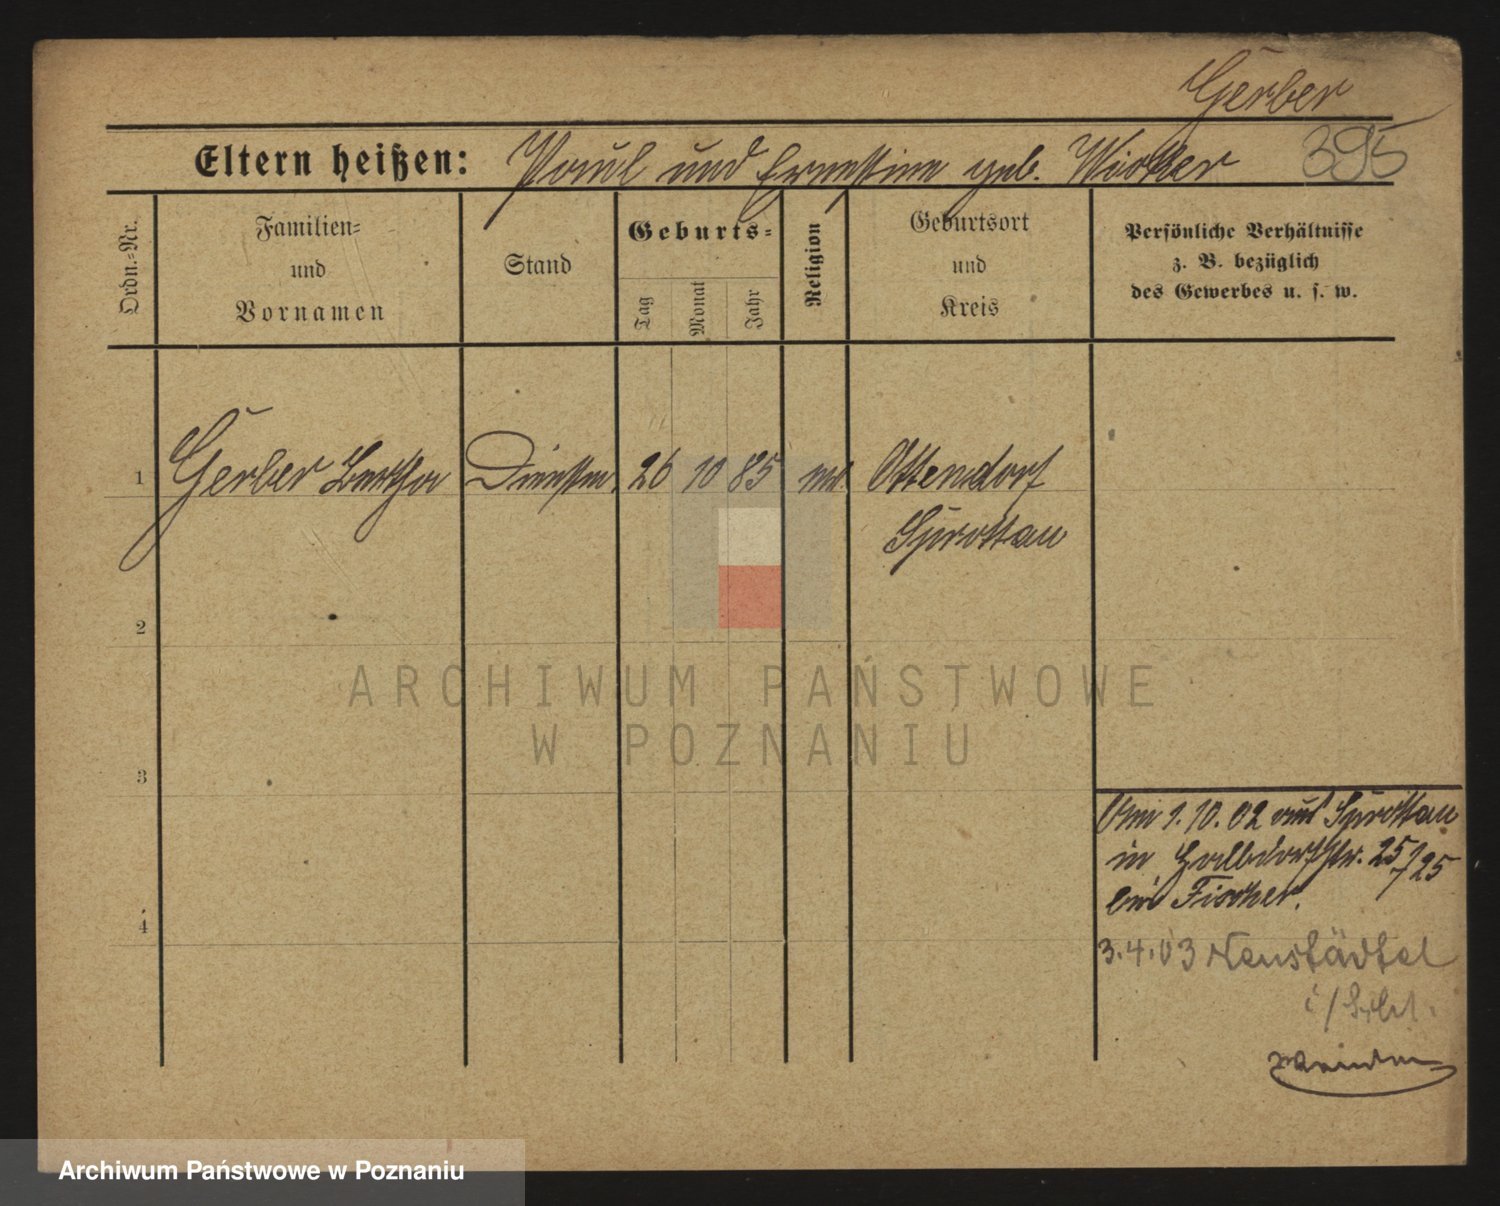 Gerber
395
Eltern heißen: Paul und Ernestine geb.
Ordn.-Nr.
Familien-
und
Vornamen
Stand
Geburts-
Tag
Monat
Jahr
Religion
Geburtsort
und
Kreis
Persönliche Verhältnisse
z. B. bezüglich
des Gewerbes u. s. w.
1 Gerber Bertha Dienstm. 26 10 85 Ottendorf
Sprottau
2
3
4
Am 1.10.02 aus Sprottau
in Halbdorfstr. 25/25
bei Fischer.
3.4.03 Neustädtel
i/Schl.
ARCHIWUM PAŃSTWOWE
W POZNANIU
Archiwum Państwowe w Poznaniu